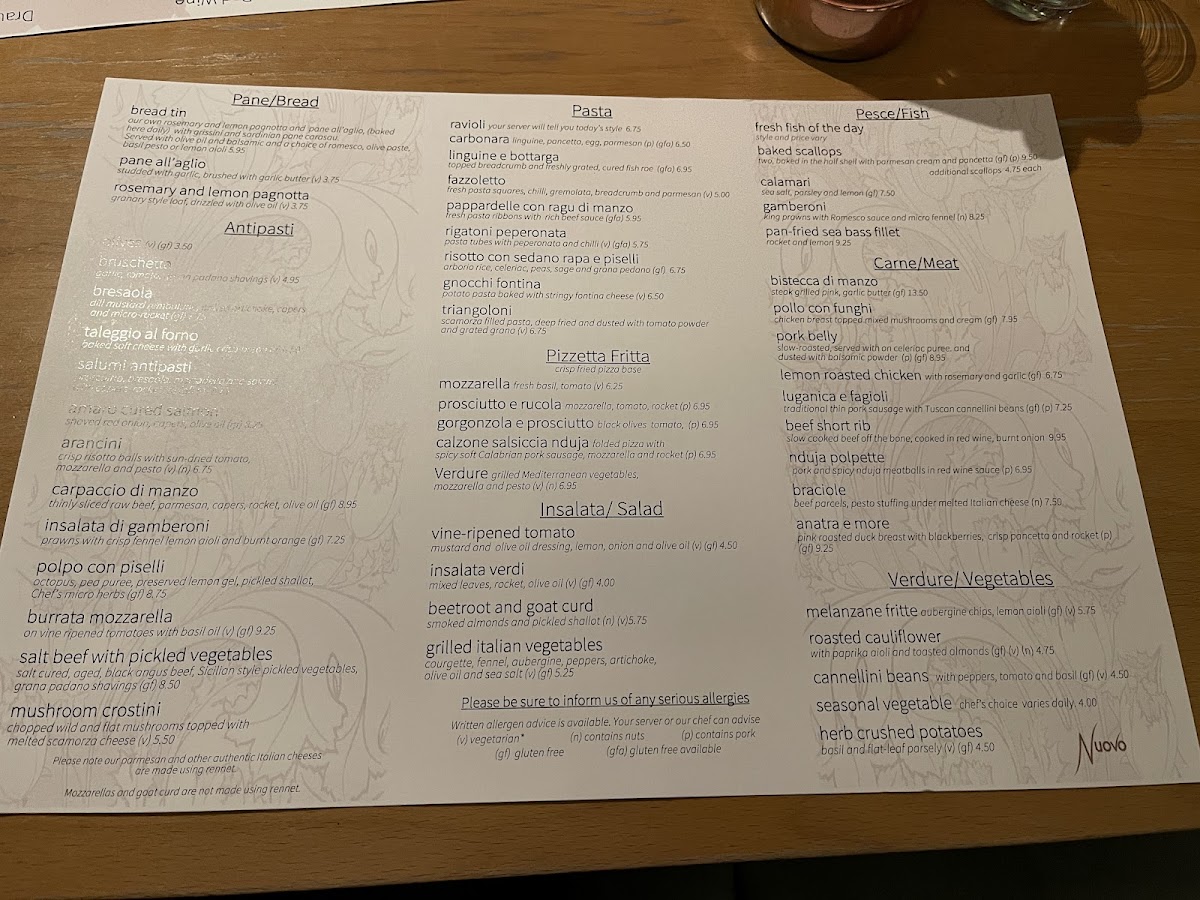 Pane/Bread
bread tin
our own rosemary and lemon pagnotta and pane all'aglio, (baked
here daily) with grissini and sardinian pane carasau.
Served with olive oil and balsamic and a choice of romesco, olive paste,
basil pesto or lemon aioli 5.95
pane all'aglio
studded with garlic, brushed with garlic butter (v) 3.75
rosemary and lemon pagnotta
granary style loaf, drizzled with olive oil (v) 3.75
Antipasti
(v) (gf) 3.50
bruschetta
padano shavings (v) 4.95
bresaola
dill mustard capers
and micro-rocket (gf)
taleggio al forno
baked soft cheese with garlic
salumi antipasti
amaro cured salmon
shaved red onion, capers, olive oil (gf)
arancini
crisp risotto balls with sun-dried tomato,
mozzarella and pesto (v) (n) 6.75
carpaccio di manzo
thinly sliced raw beef, parmesan, capers, rocket, olive oil (gf) 8.95
insalata di gamberoni
prawns with crisp fennel lemon aioli and burnt orange (gf) 7.25
polpo con piselli
octopus, pea puree, preserved lemon gel, pickled shallot,
Chef's micro herbs (gf) 8.75
burrata mozzarella
on vine ripened tomatoes with basil oil (v) (gf) 9.25
salt beef with pickled vegetables
salt cured, aged, black angus beef, Sicilian style pickled vegetables,
grana padano shavings (gf) 8.50
mushroom crostini
chopped wild and flat mushrooms topped with
melted scamorza cheese (v) 5.50
Please note our parmesan and other authentic Italian cheeses
are made using rennet.
Mozzarellas and goat curd are not made using rennet.
Pasta
ravioli your server will tell you today's style 6.75
carbonara linguine, pancetta, egg, parmesan (p) (gfa) 6.50
linguine e bottarga
topped breadcrumb and freshly grated, cured fish roe (gfa) 6.95
fazzoletto
fresh pasta squares, chilli, gremolata, breadcrumb and parmesan (v) 5.00
pappardelle con ragu di manzo
fresh pasta ribbons with rich beef sauce (gfa) 5.95
rigatoni peperonata
pasta tubes with peperonata and chilli (v) (gfa) 5.75
risotto con sedano rapa e piselli
arborio rice, celeriac, peas, sage and grana pedano (gf) 6.75
gnocchi fontina
potato pasta baked with stringy fontina cheese (v) 6.50
triangoloni
scamorza filled pasta, deep fried and dusted with tomato powder
and grated grana (v) 6.75
Pizzetta Fritta
crisp fried pizza base
mozzarella fresh basil, tomato (v) 6.25
prosciutto e rucola mozzarella, tomato, rocket (p) 6.95
gorgonzola e prosciutto black olives tomato, (p) 6.95
calzone salsiccia nduja folded pizza with
spicy soft Calabrian pork sausage, mozzarella and rocket (p) 6.95
Verdure grilled Mediterranean vegetables,
mozzarella and pesto (v) (n) 6.95
Insalata/ Salad
vine-ripened tomato
mustard and olive oil dressing, lemon, onion and olive oil (v) (gf) 4.50
insalata verdi
mixed leaves, rocket, olive oil (v) (gf) 4.00
beetroot and goat curd
smoked almonds and pickled shallot (n) (v)5.75
grilled italian vegetables
courgette, fennel, aubergine, peppers, artichoke,
olive oil and sea salt (v) (gf) 5.25
Please be sure to inform us of any serious allergies
Written allergen advice is available. Your server or our chef can advise
(v) vegetarian* (n) contains nuts (p) contains pork
(gf) gluten free (gfa) gluten free available
Pesce/Fish
fresh fish of the day
style and price vary
baked scallops
two, baked in the half shell with parmesan cream and pancetta (gf) (p) 9.50
additional scallops 4.75 each
calamari
sea salt, parsley and lemon (gf) 7.50
gamberoni
king prawns with Romesco sauce and micro fennel (n) 8.25
pan-fried sea bass fillet
rocket and lemon 9.25
Carne/Meat
bistecca di manzo
steak grilled pink, garlic butter (gf) 13.50
pollo con funghi
chicken breast topped mixed mushrooms and cream (gf) 7.95
pork belly
slow-roasted, served with on celeriac puree, and
dusted with balsamic powder (p) (gf) 8.95
lemon roasted chicken with rosemary and garlic (gf) 6.75
luganica e fagioli
traditional thin pork sausage with Tuscan cannellini beans (gf) (p) 7.25
beef short rib
slow cooked beef off the bone, cooked in red wine, burnt onion 9.95
nduja polpette
pork and spicy nduja meatballs in red wine sauce (p) 6.95
braciole
beef parcels, pesto stuffing under melted Italian cheese (n) 7.50
anatra e more
pink roasted duck breast with blackberries, crisp pancetta and rocket (p)
(gf) 9.25
Verdure/Vegetables
melanzane fritte aubergine chips, lemon aioli (gf) (v) 5.75
roasted cauliflower
with paprika aioli and toasted almonds (gf) (v) (n) 4.75
cannellini beans with peppers, tomato and basil (gf) (v) 4.50
seasonal vegetable chef's choice varies daily 4.00
herb crushed potatoes
basil and flat-leaf parsely (v) (gf) 4.50
Nuovo